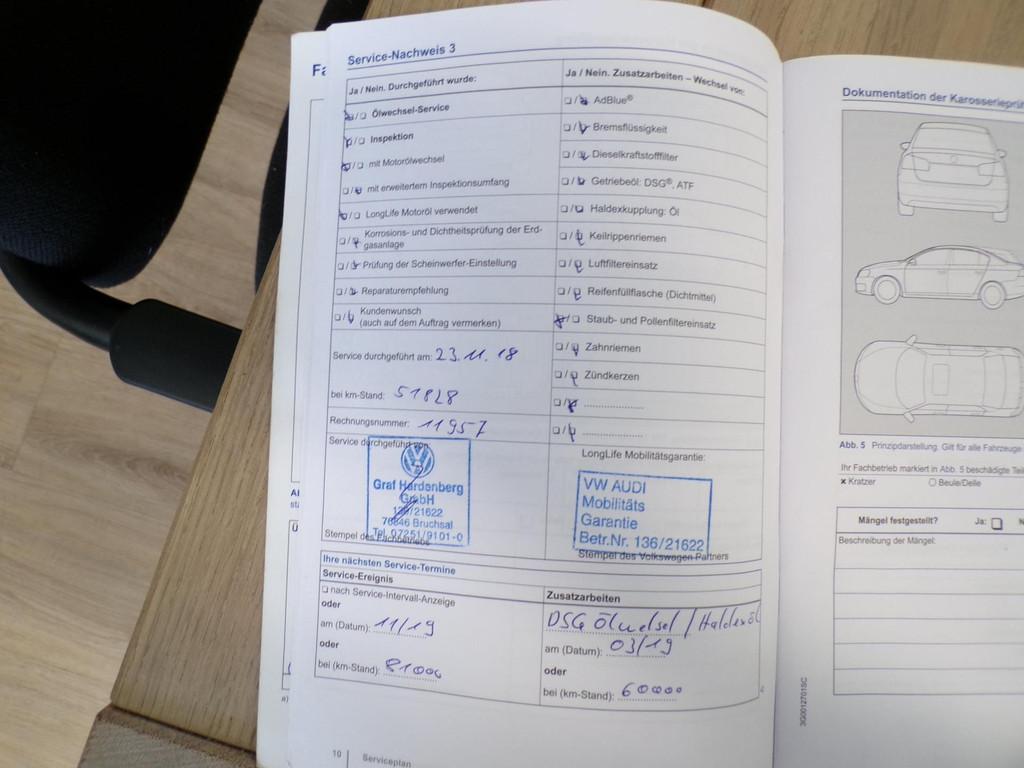 Service-Nachweis 3
Ja / Nein. Durchgeführt wurde:
Ölwechsel-Service
Inspektion
mit Motorölwechsel
mit erweitertem Inspektionsumfang
LongLife Motoröl verwendet
Korrosions- und Dichtheitsprüfung der Erd-
gasanlage
Prüfung der Scheinwerfer-Einstellung
Reparaturempfehlung
Kundenwunsch
(auch auf dem Auftrag vermerken)
Service durchgeführt am: 23.11.18
bei km-Stand: 51828
Rechnungsnummer: 11957
Service durchgeführt von:
Graf Hardenberg
GmbH
136/21622
76646 Bruchsal
Tel. 07251/9101-0
Stempel des Fachbetriebs
Ja / Nein. Zusatzarbeiten – Wechsel von:
AdBlue®
Bremsflüssigkeit
Dieselkraftstofffilter
Getriebeöl: DSG®, ATF
Haldexkupplung: Öl
Keilrippenriemen
Luftfiltereinsatz
Reifenfüllflasche (Dichtmittel)
Staub- und Pollenfiltereinsatz
Zahnriemen
Zündkerzen
LongLife Mobilitätsgarantie:
VW AUDI
Mobilitäts
Garantie
Betr.Nr. 136/21622
Stempel des Volkswagen Partners
Ihre nächsten Service-Termine
Service-Ereignis
nach Service-Intervall-Anzeige
oder
am (Datum): 11/19
oder
bei (km-Stand): 81000
Zusatzarbeiten
DSG Ölwechsel / Haldexöl
am (Datum): 03/19
oder
bei (km-Stand): 60000
10 | Serviceplan
Dokumentation der
Abb. 5 Prinzipdarstellung. Gilt für alle Fahrzeuge
Ihr Fachbetrieb markiert in Abb. 5 beschädigte
Kratzer Beule/Delle
Mängel festgestellt? Ja:
Beschreibung der Mängel:
3G0012701SC